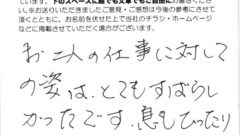 さい。※お送りいただきましたご意見・ご感想は今後の参考にさせて
頂くとともに、お名前を伏せた上で当社のチラシ・ホームページ
などに掲載させていただく場合がございます。
お二人の仕事に対して
の姿は、とてもすばらし
かったです。息もぴったり